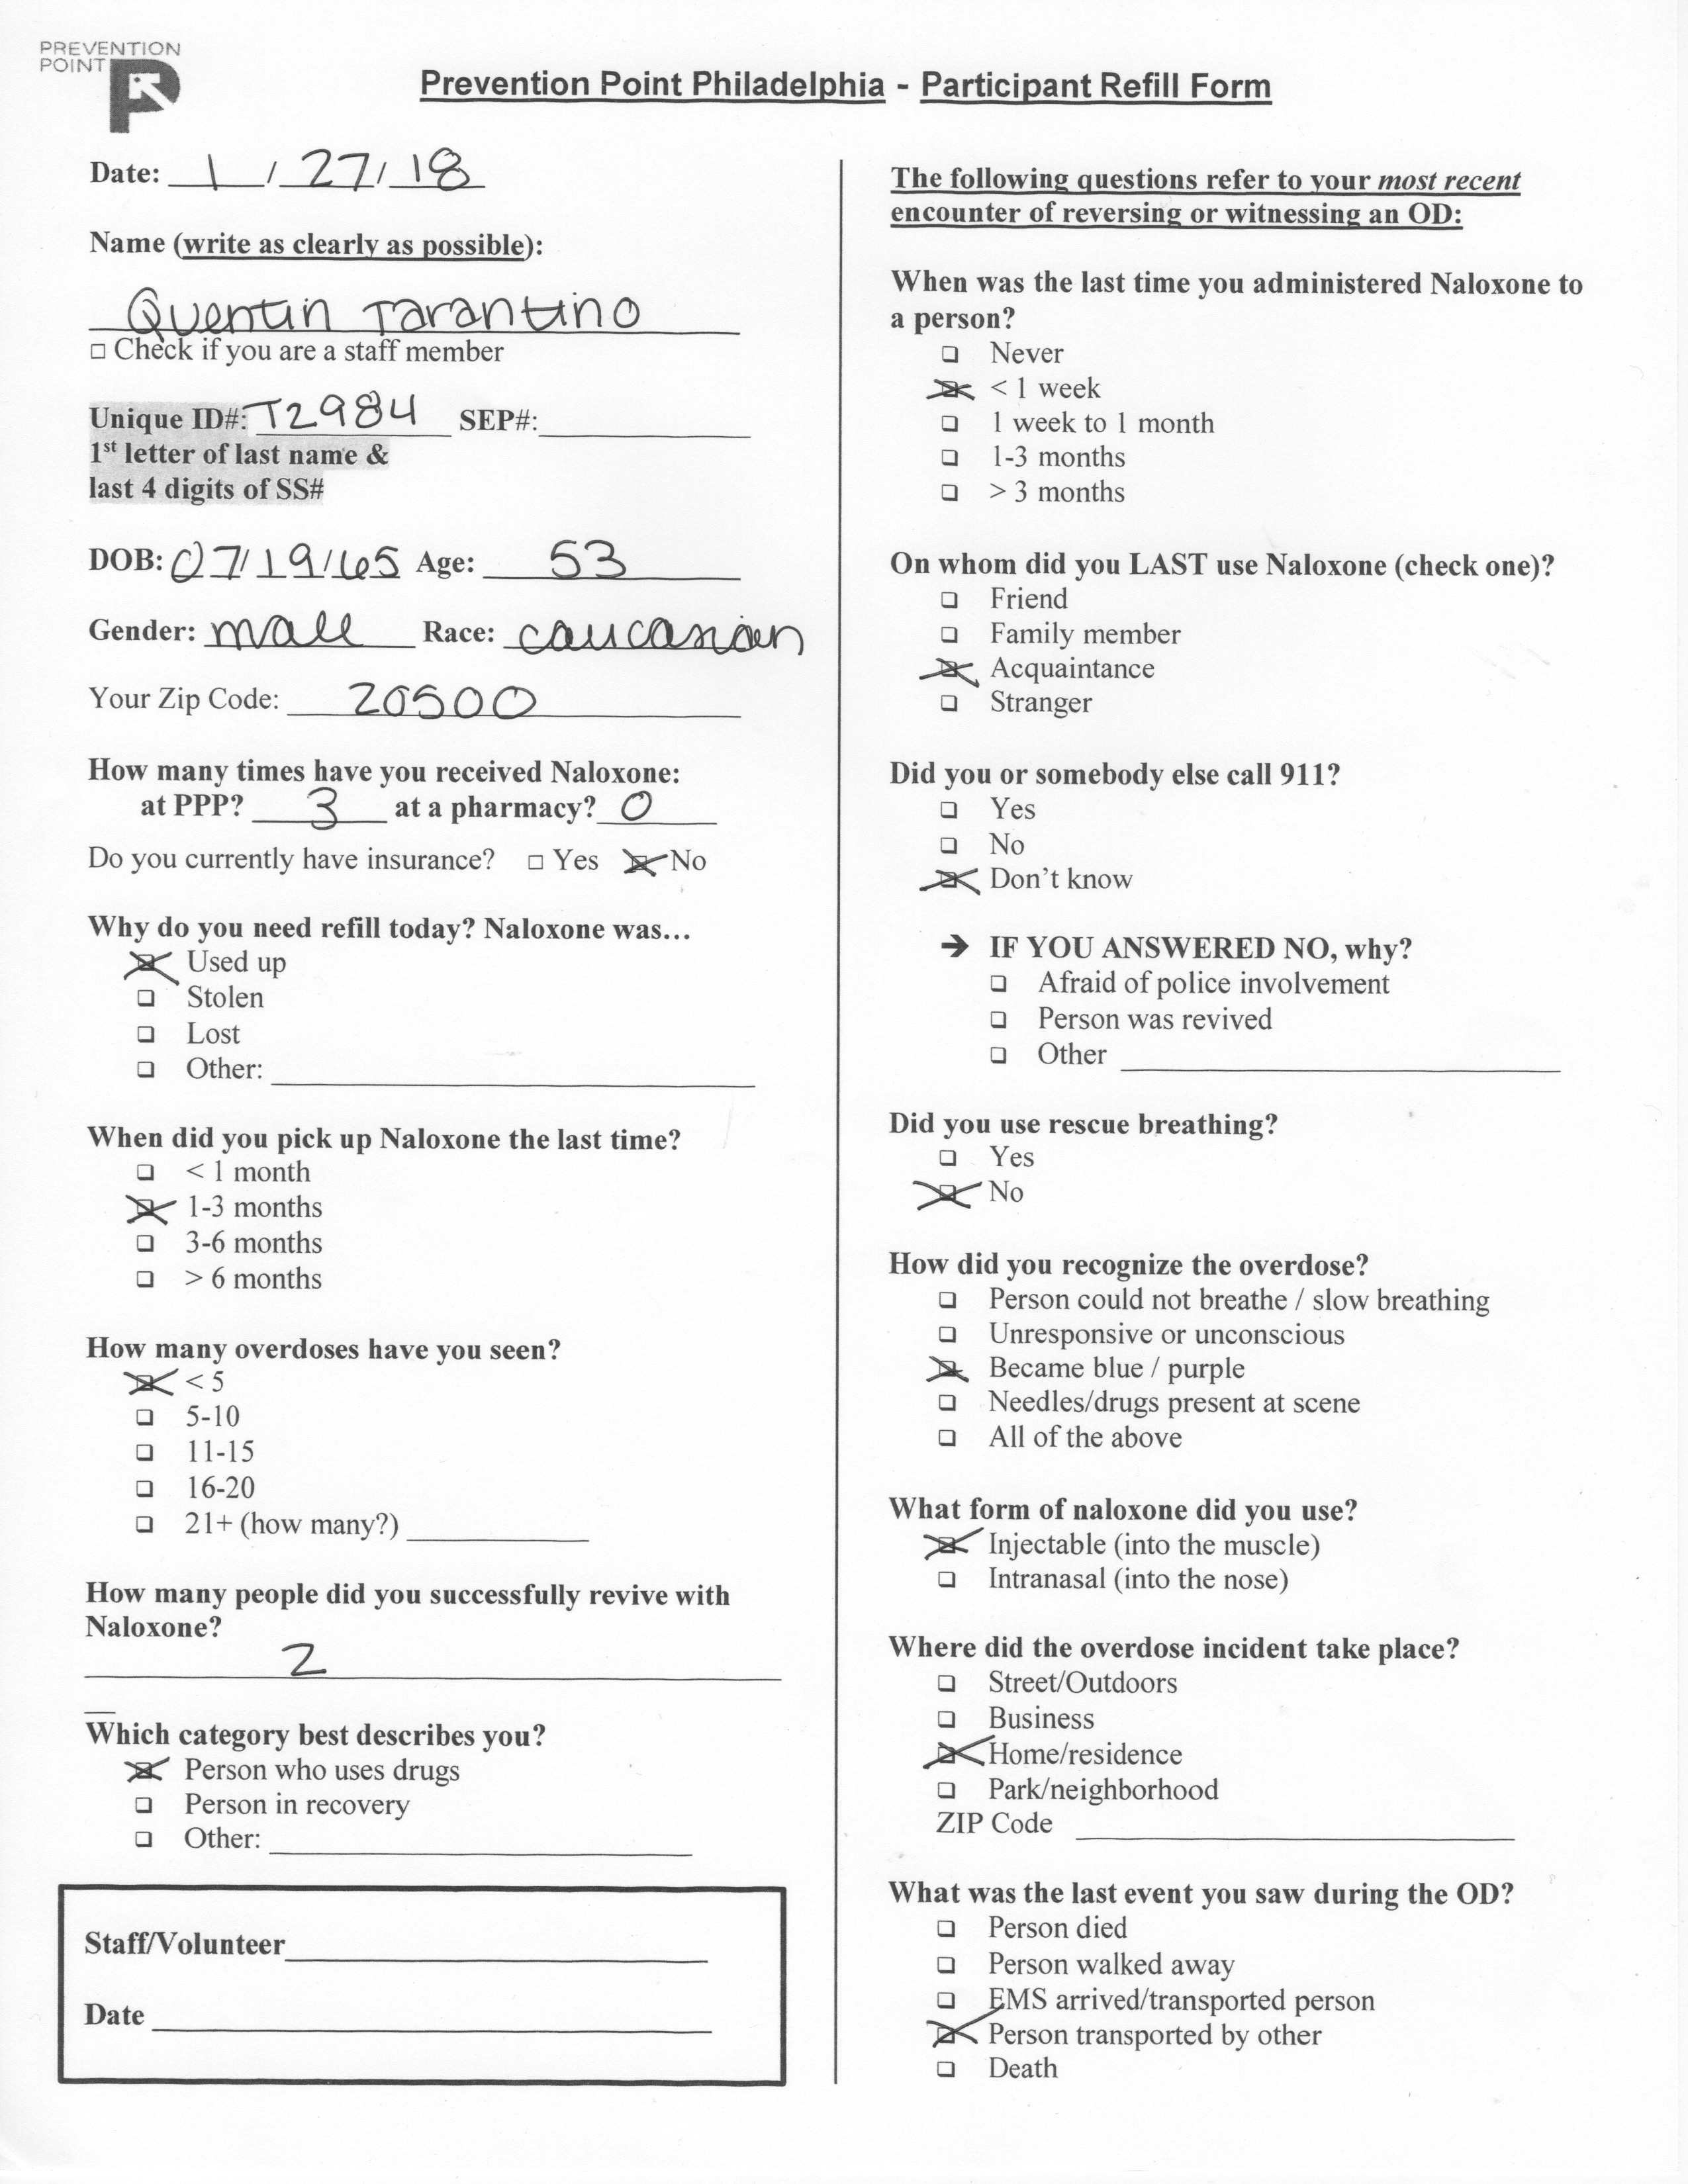 PREVENTION
POINT
Prevention Point Philadelphia - Participant Refill Form
Date: 1 / 27 / 18
Name (write as clearly as possible):
Quentin Tarantino
□ Check if you are a staff member
Unique ID#: T2984 SEP#:
1st letter of last name &
last 4 digits of SS#
DOB: 07/19/65 Age: 53
Gender: male Race: caucasian
Your Zip Code: 20500
How many times have you received Naloxone:
at PPP? 3 at a pharmacy? 0
Do you currently have insurance? □ Yes ☒ No
Why do you need refill today? Naloxone was…
☒ Used up
❑ Stolen
❑ Lost
❑ Other:
When did you pick up Naloxone the last time?
❑ < 1 month
☒ 1-3 months
❑ 3-6 months
❑ > 6 months
How many overdoses have you seen?
☒ < 5
❑ 5-10
❑ 11-15
❑ 16-20
❑ 21+ (how many?)
How many people did you successfully revive with
Naloxone?
2
Which category best describes you?
☒ Person who uses drugs
❑ Person in recovery
❑ Other:
Staff/Volunteer
Date
The following questions refer to your most recent
encounter of reversing or witnessing an OD:
When was the last time you administered Naloxone to
a person?
❑ Never
☒ < 1 week
❑ 1 week to 1 month
❑ 1-3 months
❑ > 3 months
On whom did you LAST use Naloxone (check one)?
❑ Friend
❑ Family member
☒ Acquaintance
❑ Stranger
Did you or somebody else call 911?
❑ Yes
❑ No
☒ Don't know
➔ IF YOU ANSWERED NO, why?
❑ Afraid of police involvement
❑ Person was revived
❑ Other
Did you use rescue breathing?
❑ Yes
☒ No
How did you recognize the overdose?
❑ Person could not breathe / slow breathing
❑ Unresponsive or unconscious
☒ Became blue / purple
❑ Needles/drugs present at scene
❑ All of the above
What form of naloxone did you use?
☒ Injectable (into the muscle)
❑ Intranasal (into the nose)
Where did the overdose incident take place?
❑ Street/Outdoors
❑ Business
☒ Home/residence
❑ Park/neighborhood
ZIP Code
What was the last event you saw during the OD?
❑ Person died
❑ Person walked away
❑ EMS arrived/transported person
☒ Person transported by other
❑ Death